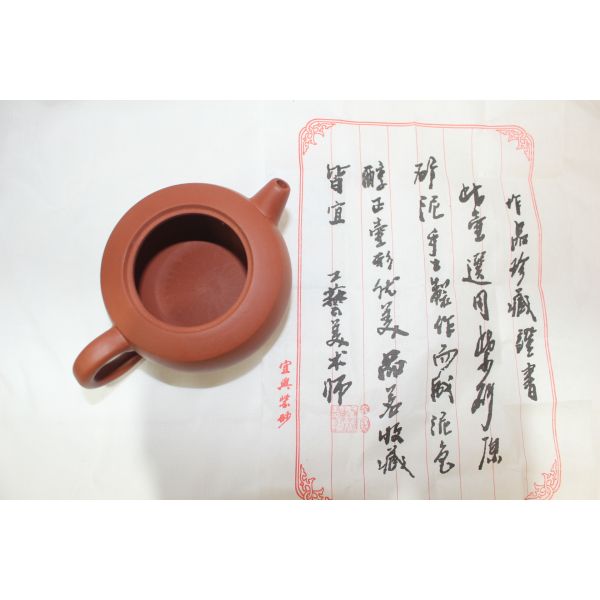 作品珍藏證書
此壷選用紫砂原
砂泥手工製作而成泥色
醇正壷形优美品茗收藏
皆宜
工藝美术师
宜興紫砂